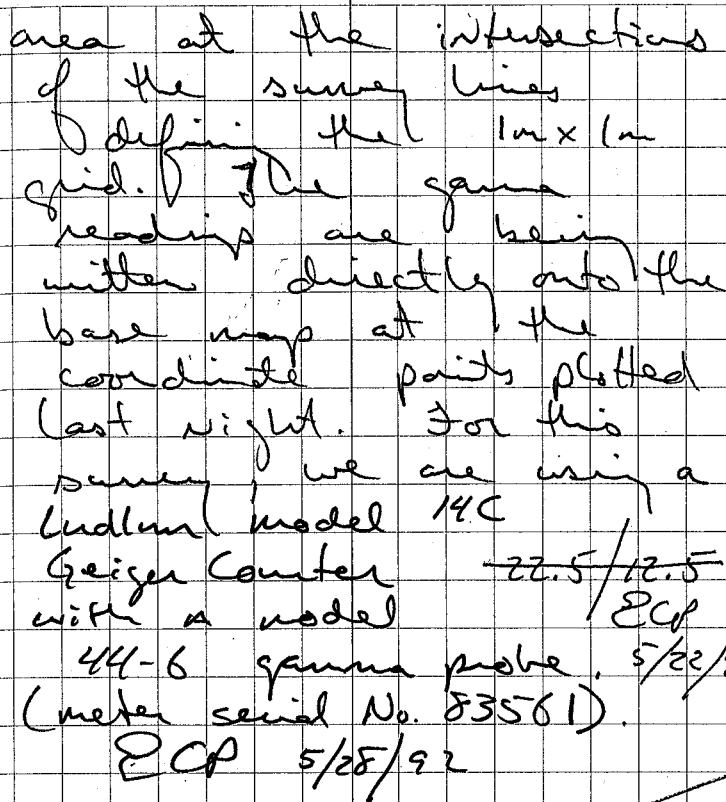 area at the intersections
of the survey lines
defining the 1m x 1m
grid. The gamma
readings are being
written directly onto the
base map at the
coordinate points plotted
last night. For this
survey, we are using a
Ludlum model 14C
Geiger Counter 22.5/12.5
with a model ECP
44-6 gamma probe. 5/22/
(meter serial No. 83561).
ECP 5/28/92